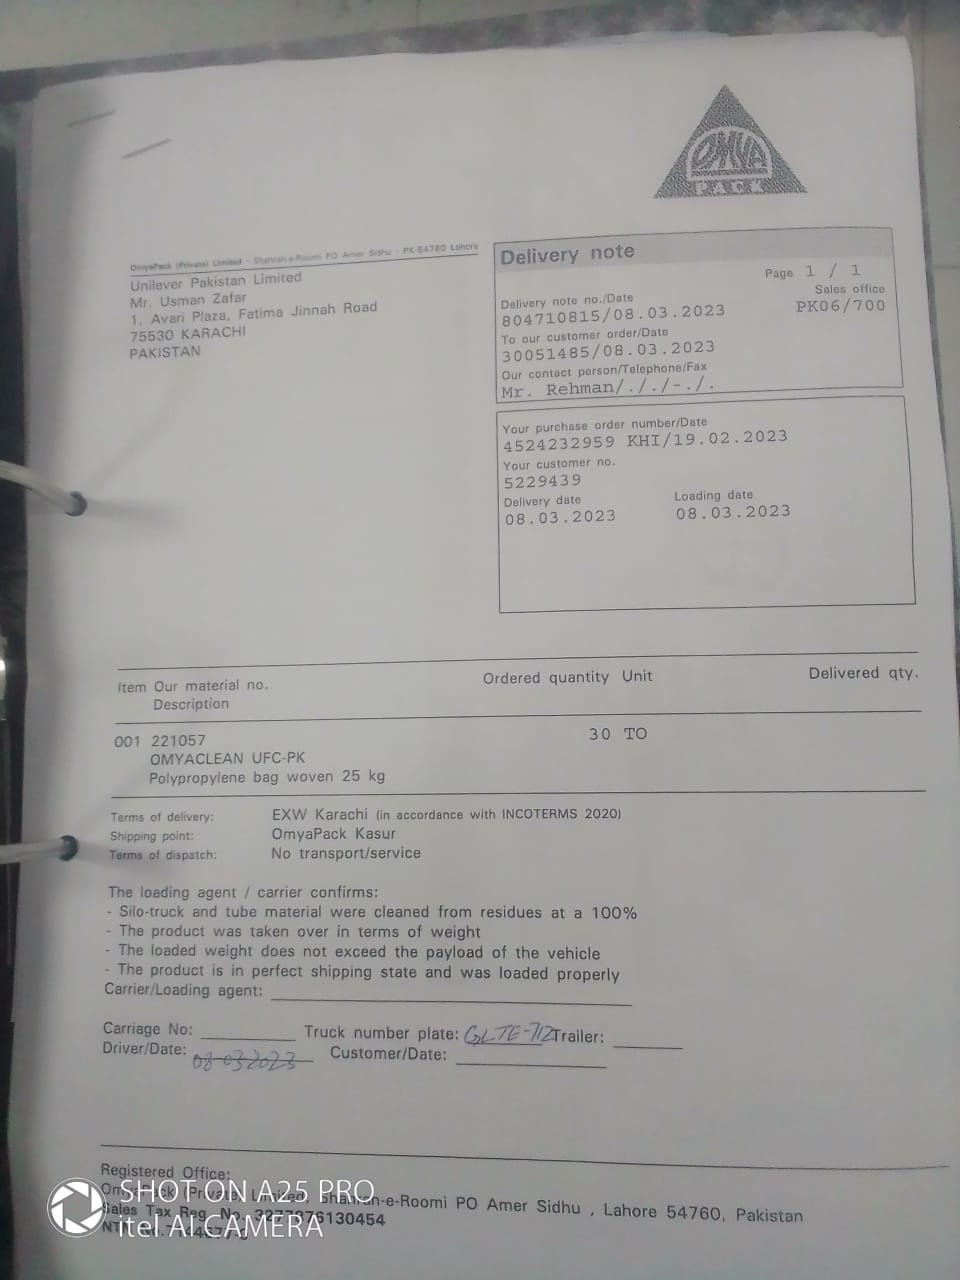 OMYA
PACK
OmyaPack (Private) Limited - Shahrah-e-Roomi PO Amer Sidhu - PK-54760 Lahore
Unilever Pakistan Limited
Mr. Usman Zafar
1, Avari Plaza, Fatima Jinnah Road
75530 KARACHI
PAKISTAN
Delivery note
Page 1 / 1
Delivery note no./Date
Sales office
804710815/08.03.2023
PK06/700
To our customer order/Date
30051485/08.03.2023
Our contact person/Telephone/Fax
Mr. Rehman/././-./.
Your purchase order number/Date
4524232959 KHI/19.02.2023
Your customer no.
5229439
Delivery date
Loading date
08.03.2023
08.03.2023
Item Our material no.
Description
Ordered quantity Unit
Delivered qty.
001 221057
30 TO
OMYACLEAN UFC-PK
Polypropylene bag woven 25 kg
Terms of delivery: EXW Karachi (in accordance with INCOTERMS 2020)
Shipping point: OmyaPack Kasur
Terms of dispatch: No transport/service
The loading agent / carrier confirms:
- Silo-truck and tube material were cleaned from residues at a 100%
- The product was taken over in terms of weight
- The loaded weight does not exceed the payload of the vehicle
- The product is in perfect shipping state and was loaded properly
Carrier/Loading agent:
Carriage No: Truck number plate: GLTE-712 Trailer:
Driver/Date: 08-03-2023 Customer/Date:
Registered Office:
OmyaPack (Private) Limited, Shahrah-e-Roomi PO Amer Sidhu , Lahore 54760, Pakistan
Sales Tax Reg. No. 3277876130454
NTN No.
SHOT ON A25 PRO
itel AI CAMERA